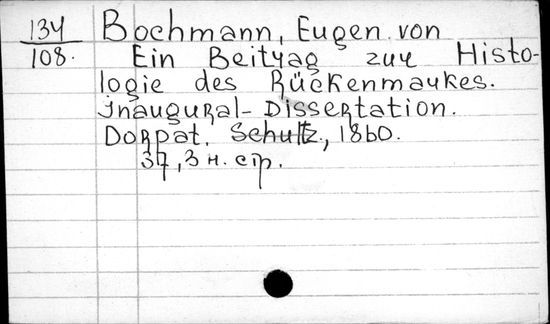 134 Bochmann, Eugen von
108. Ein Beitrag zur Histo-
logie des Rückenmarkes.
Inaugural-Dissertation.
Dorpat. Schultz, 1860.
37, 3 н. стр.